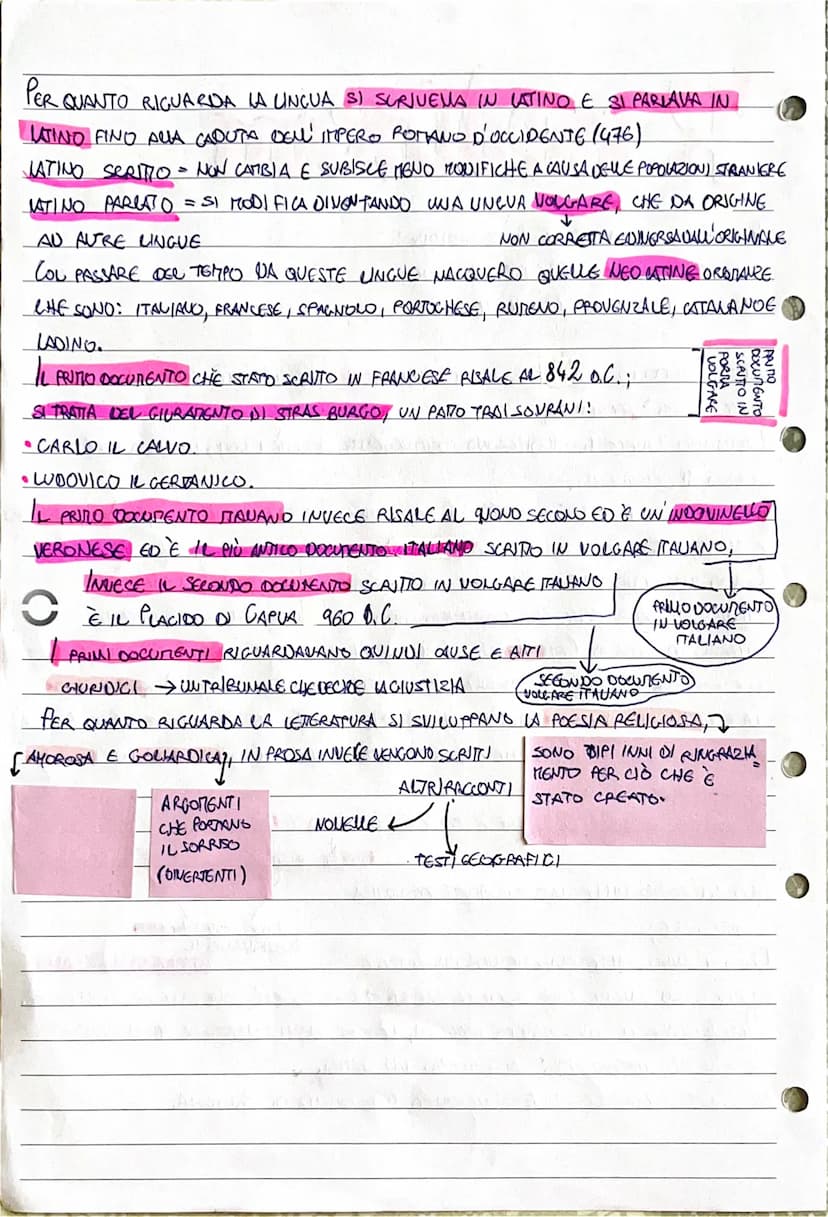 PER QUANTO RIGUARDA LA LINGUA SI SCRIVEVA IN LATINO E SI PARLAVA IN
LATINO FINO ALLA CADUTA DELL'IMPERO ROMANO D'OCCIDENTE (476)
LATINO SCRITTO = NON CAMBIA E SUBISCE MENO MODIFICHE A CAUSA DELLE POPOLAZIONI STRANIERE
LATINO PARLATO = SI MODIFICA DIVENTANDO UNA LINGUA VOLGARE, CHE DA ORIGINE
AD ALTRE LINGUE
NON CORRETTA E DIVERSA DALL'ORIGINALE
COL PASSARE DEL TEMPO DA QUESTE LINGUE NACQUERO QUELLE NEO LATINE ORDINARIE
CHE SONO: ITALIANO, FRANCESE, SPAGNOLO, PORTOGHESE, RUMENO, PROVENZALE, CATALANO E
LADINO.
IL PRIMO DOCUMENTO CHE STATO SCRITTO IN FRANCESE RISALE AL 842 D.C.;
PRIMO
DOCUMENTO
SCRITTO IN
FORMA
VOLGARE
SI TRATTA DEL GIURAMENTO DI STRASBURGO, UN PATTO TRA I SOVRANI:
• CARLO IL CALVO.
• LUDOVICO IL GERMANICO.
IL PRIMO DOCUMENTO ITALIANO INVECE RISALE AL NONO SECOLO ED È UN'INDOVINELLO
VERONESE ED È IL PIÙ ANTICO DOCUMENTO ITALIANO SCRITTO IN VOLGARE ITALIANO,
INVECE IL SECONDO DOCUMENTO SCRITTO IN VOLGARE ITALIANO
È IL PLACIDO DI CAPUA 960 D.C.
PRIMO DOCUMENTO
IN VOLGARE
ITALIANO
I PRIMI DOCUMENTI RIGUARDAVANO QUINDI CAUSE E ATTI
GIURIDICI → UN TRIBUNALE CHE DECIDE LA GIUSTIZIA
SECONDO DOCUMENTO
VOLGARE ITALIANO
PER QUANTO RIGUARDA LA LETTERATURA SI SVILUPPANO LA POESIA RELIGIOSA,
AMOROSA E GOLIARDICA, IN PROSA INVECE VENGONO SCRITTI
SONO TIPI INNI DI RINGRAZIA=
MENTO PER CIÒ CHE È
STATO CREATO.
ALTRI RACCONTI
ARGOMENTI
CHE PORTANO
IL SORRISO
(DIVERTENTI)
NOVELLE
TESTI GEOGRAFICI